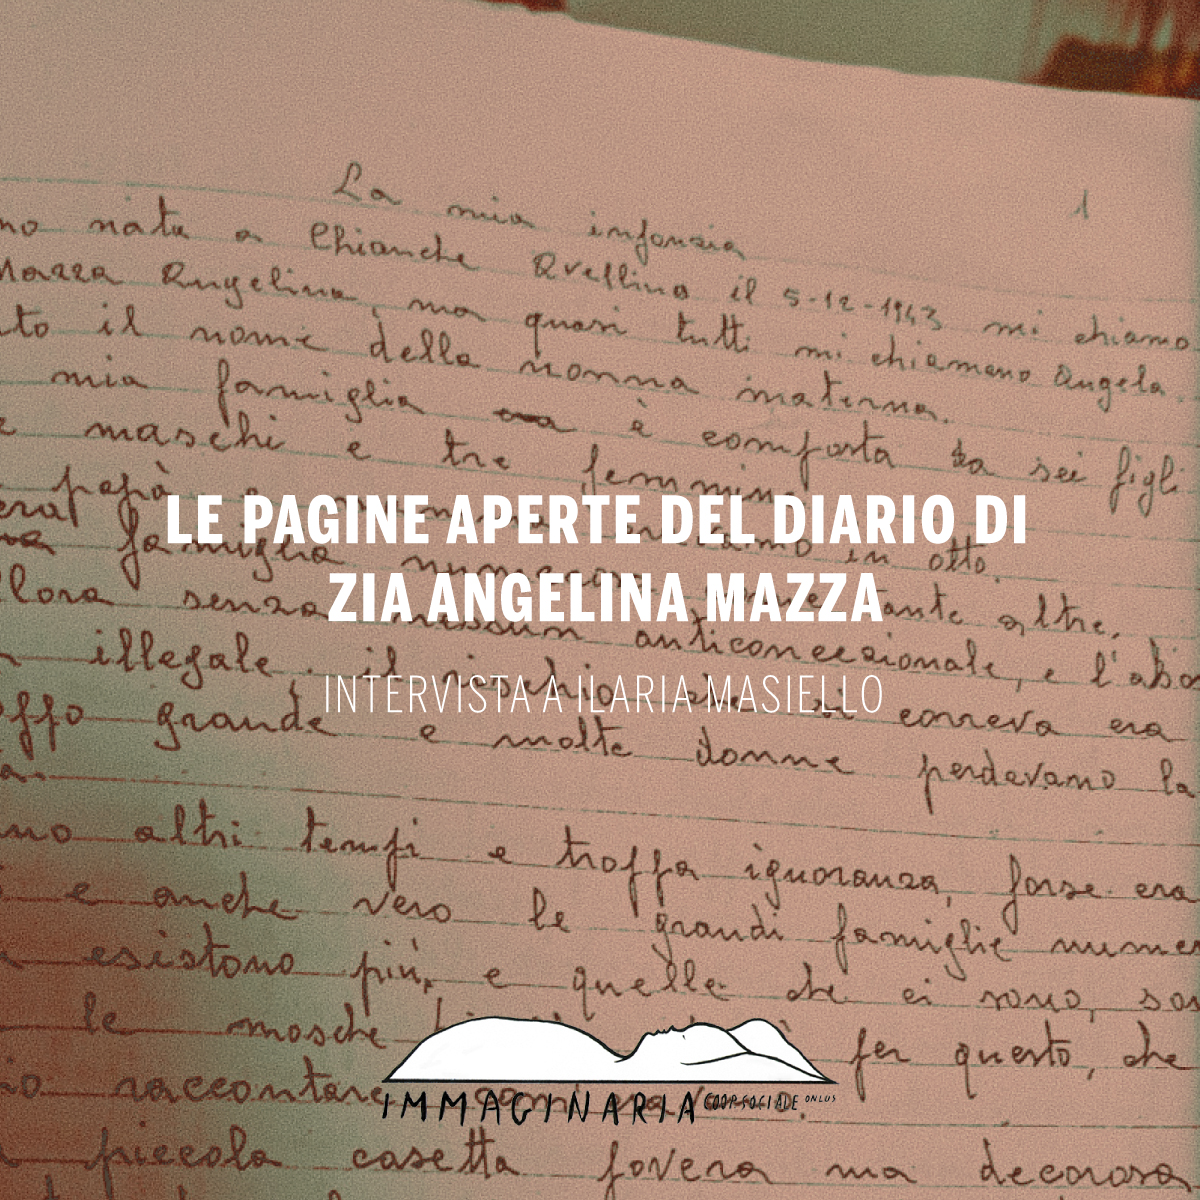 La mia infanzia
1
no nata a Chianche Avellino il 5-12-1943 mi chiamo
Mazza Angelina, ma quasi tutti mi chiamano Angela.
to il nome della nonna materna.
mia famiglia è comforta da sei figli
maschi e tre femmine
papà e mamma eravamo in otto.
famiglia numerosa come tante altre,
llora senza nessun anticoncezionale, e l'abo
illegale. il rischio che si correva era
offo grande e molte donne perdevano la
a.
no altri tempi e troppa ignoranza, forse era
e anche vero le grandi famiglie numer
esistono più, e quelle che ci sono, son
le mosche per questo, che
raccontare, com'era
piccola casetta povera ma decorosa
LE PAGINE APERTE DEL DIARIO DI
ZIA ANGELINA MAZZA
INTERVISTA A ILARIA MASIELLO
IMMAGINARIA COOP SOCIALE ONLUS